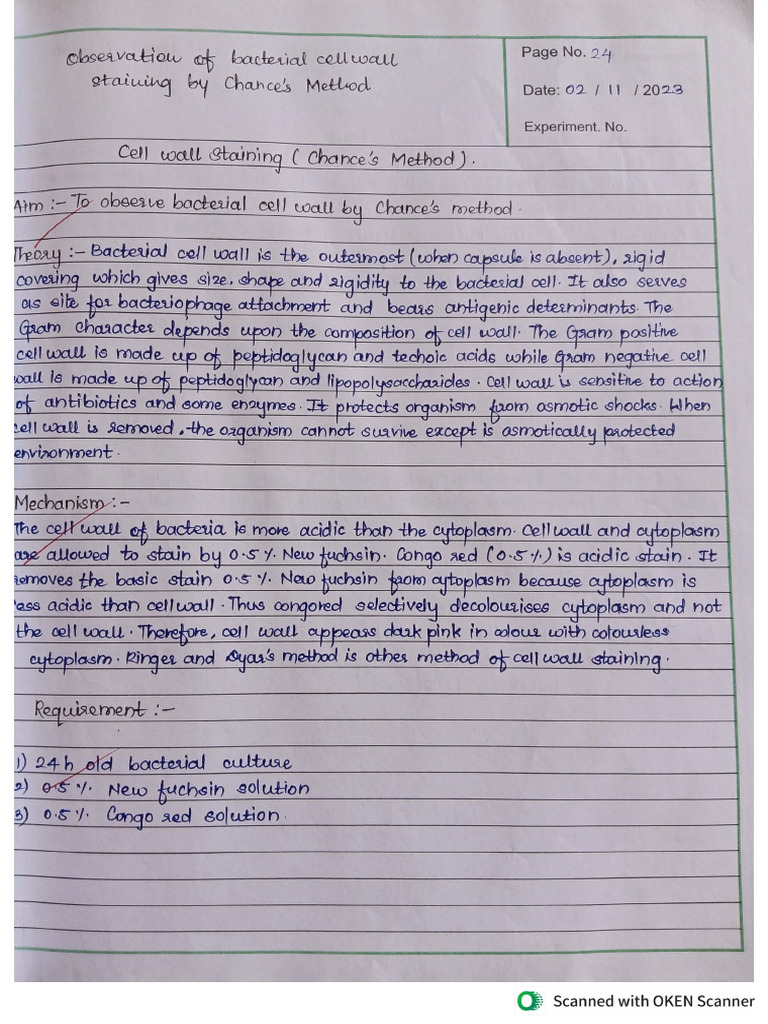 Observation of bacterial cell wall
staining by Chance's Method
Page No. 24
Date: 02 / 11 / 2023
Experiment. No.
Cell wall Staining ( Chance's Method ).
Aim :- To observe bacterial cell wall by Chance's method.
Theory :- Bacterial cell wall is the outermost (when capsule is absent), rigid
covering which gives size, shape and rigidity to the bacterial cell. It also serves
as site for bacteriophage attachment and bears antigenic determinants. The
Gram character depends upon the composition of cell wall. The Gram positive
cell wall is made up of peptidoglycan and techoic acids while Gram negative cell
wall is made up of peptidoglycan and lipopolysaccharides. Cell wall is sensitive to action
of antibiotics and some enzymes. It protects organism from osmotic shocks. When
cell wall is removed, the organism cannot survive except is osmotically protected
environment.
Mechanism :-
The cell wall of bacteria is more acidic than the cytoplasm. Cell wall and cytoplasm
are allowed to stain by 0.5 %. New fuchsin. Congo red (0.5 %.) is acidic stain. It
removes the basic stain 0.5 %. New fuchsin from cytoplasm because cytoplasm is
less acidic than cell wall. Thus congored selectively decolourises cytoplasm and not
the cell wall. Therefore, cell wall appears dark pink in colour with colourless
cytoplasm. Ringer and Dyar's method is other method of cell wall staining.
Requirement :-
1) 24 h old bacterial culture
2) 0.5 %. New fuchsin solution
3) 0.5 %. Congo red solution.
Scanned with OKEN Scanner